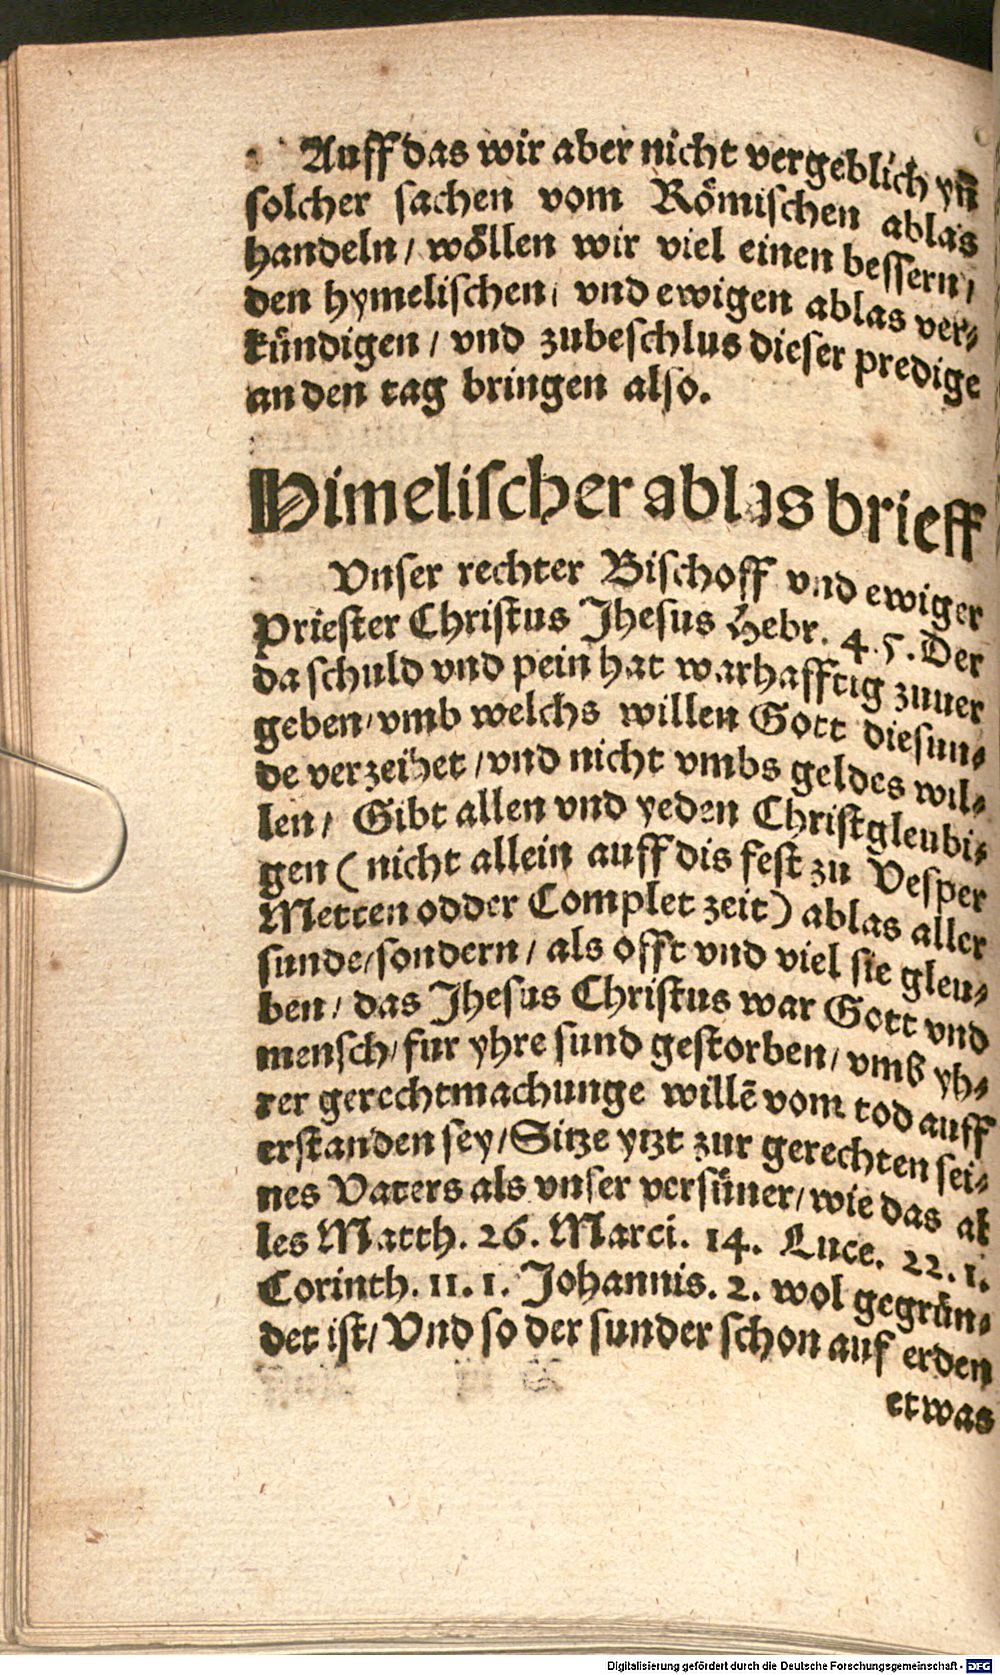 Auff das wir aber nicht vergeblich yn̄
solcher sachen vom Römischen ablas
handeln / wöllen wir viel einen bessern /
den hymelischen / vnd ewigen ablas ver⸗
kündigen / vnd zubeschlus dieser predige
an den tag bringen also.
Himelischer ablas brieff
Vnser rechter Bischoff vnd ewiger
Priester Christus Jhesus Hebr. 4. 5. Der
da schuld vnd pein hat warhafftig zuuer
geben / vmb welchs willen Gott die sun⸗
de verzeihet / vnd nicht vmbs geldes wil⸗
len / Gibt allen vnd yeden Christgleubi⸗
gen ( nicht allein auff dis fest zu Vesper
Metten odder Complet zeit ) ablas aller
sunde / sondern / als offt vnd viel sie gleu⸗
ben / das Jhesus Christus war Gott vnd
mensch / fur yhre sund gestorben / vmb yh⸗
rer gerechtmachunge willē vom tod auff
erstanden sey / Sitze ytzt zur gerechten sei⸗
nes Vaters als vnser versüner / wie das al
les Matth. 26. Marci. 14. Luce. 22. 1.
Corinth. 11. 1. Johannis. 2. wol gegrün⸗
det ist / Vnd so der sunder schon auf erden
etwas
Digitalisierung gefördert durch die Deutsche Forschungsgemeinschaft - DFG